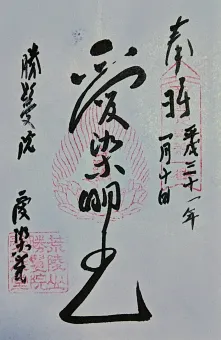 奉拝
平成三十一年
一月十日
愛染明王
勝鬘院
愛染堂
荒陵山
勝鬘院
愛染堂